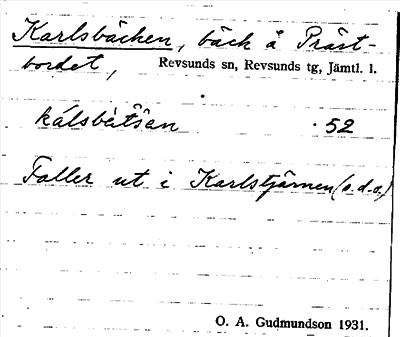 Karlsbäcken, bäck å Präst-
bordet, Revsunds sn, Revsunds tg, Jämtl. l.
52
Faller ut i Karlstjärnen (s.d.o.)
O. A. Gudmundson 1931.